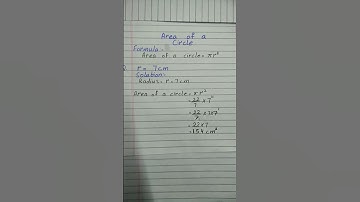 Area of a
Circle
Formula:-
Area of a circle = πr²
r = 7cm
Solution:-
Radius = r = 7cm
Area of a circle = πr²
= 22/7 x 7²
= 22/7 x 7x7
= 22 x 7
= 154 cm²